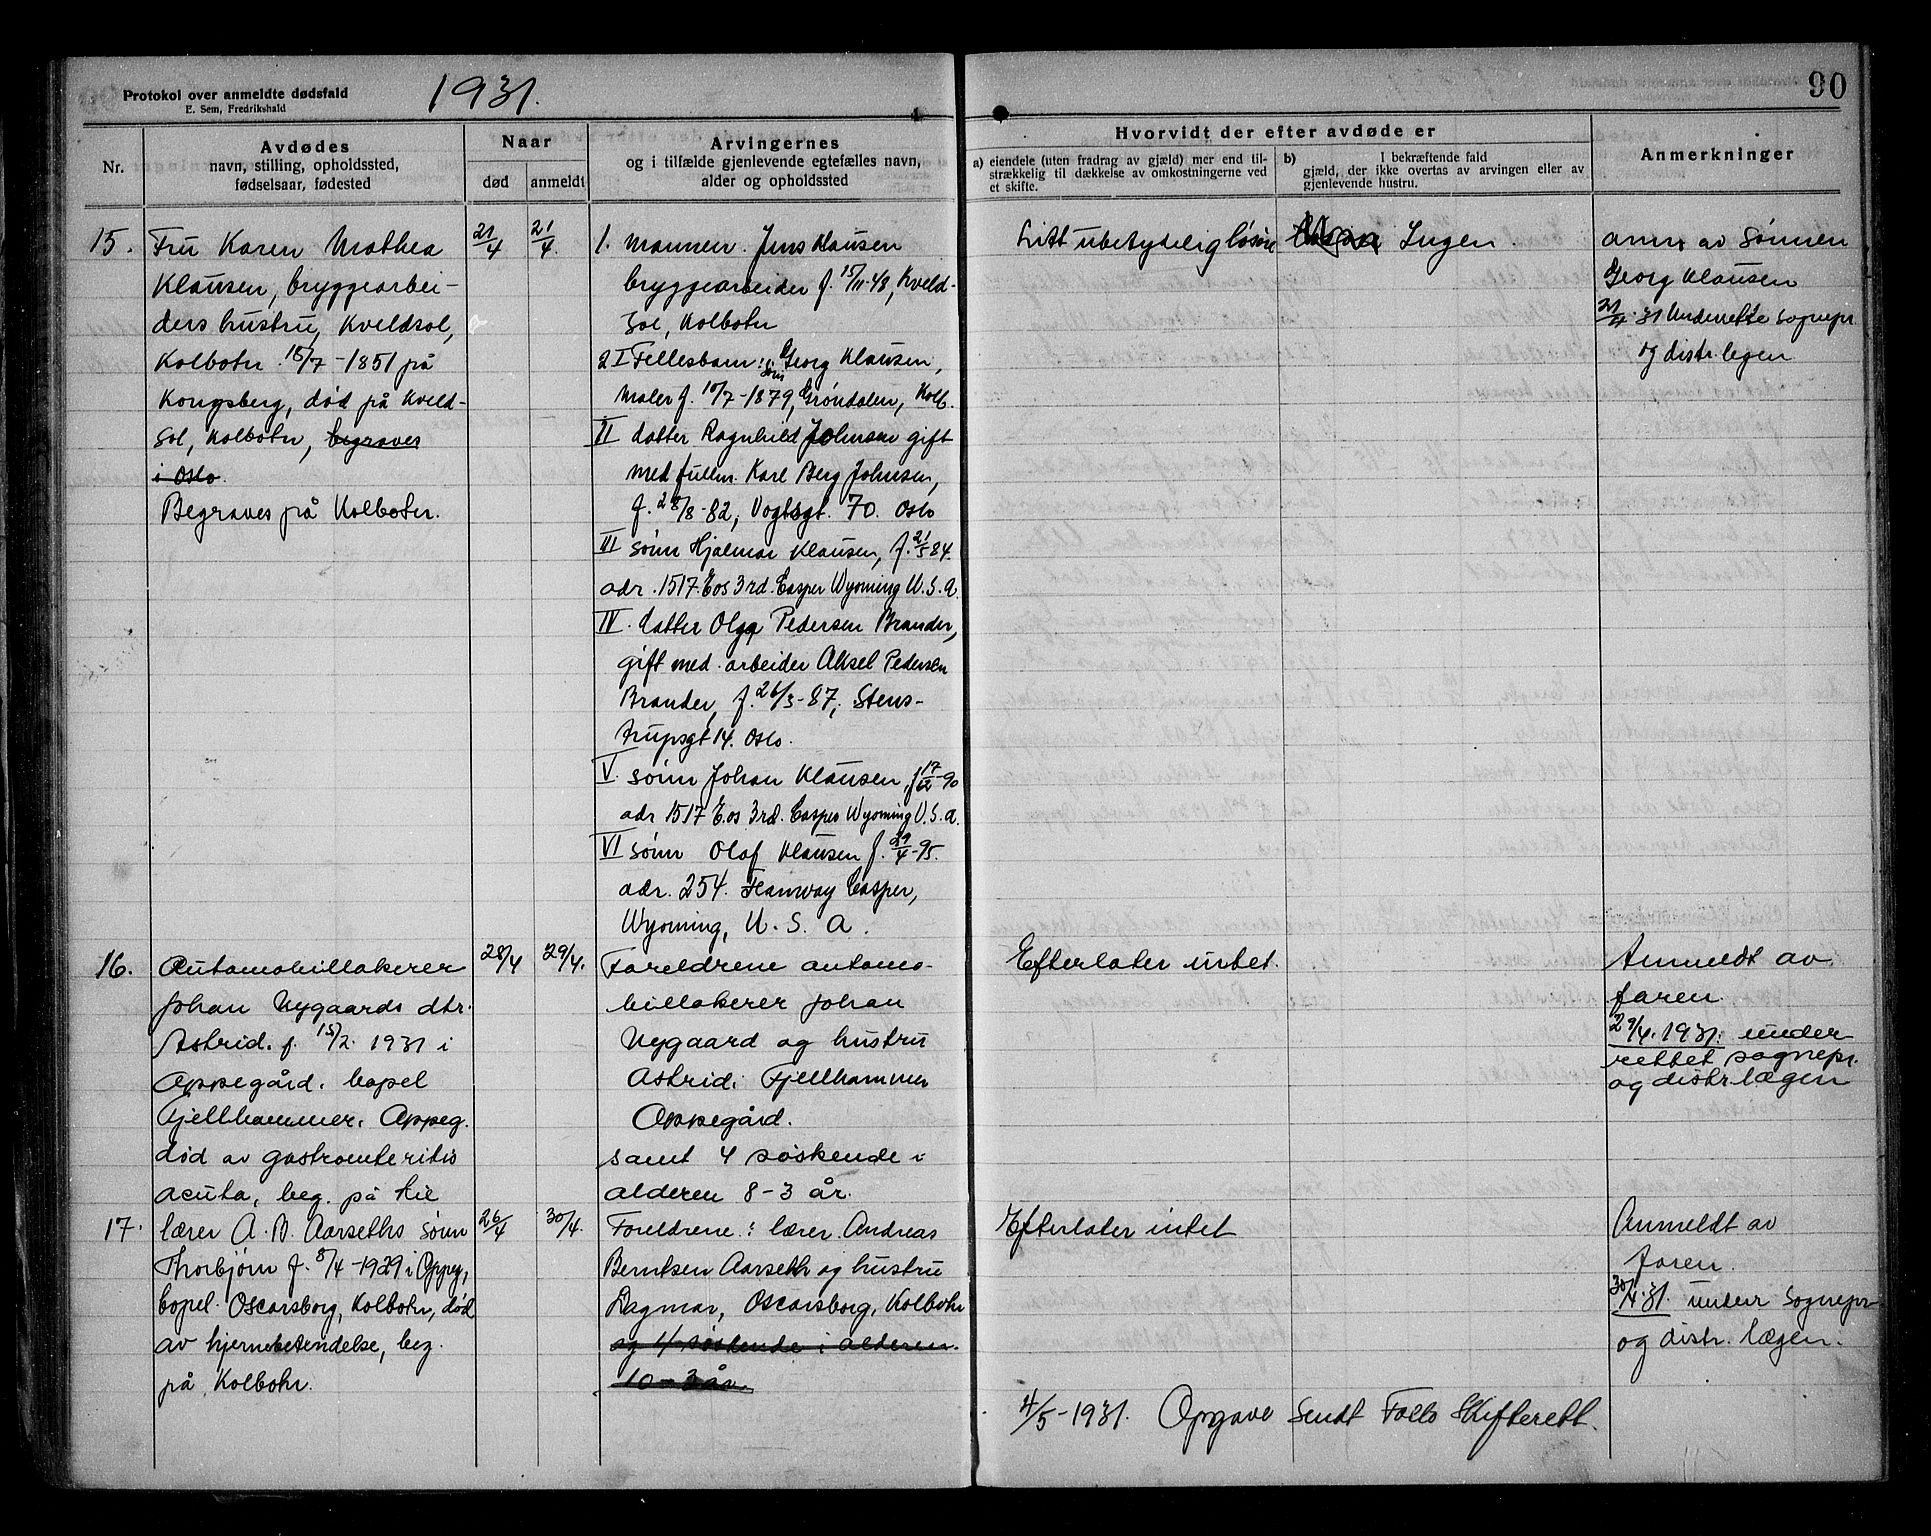 Protokol over anmeldte dødsfald
E. Sem, Fredrikshald
1931.
90
Nr.
Avdødes
navn, stilling, opholdssted,
fødselsaar, fødested
Naar
død
anmeldt
Arvingernes
og i tilfælde gjenlevende egtefælles navn,
alder og opholdssted
Hvorvidt der efter avdøde er
a) eiendele (uten fradrag av gjæld) mer end til-
strækkelig til dækkelse av omkostningerne ved
et skifte.
b) I bekræftende fald
gjæld, der ikke overtas av arvingen eller av
gjenlevende hustru.
Anmerkninger
15.
Fru Karen Mathea
Klausen, bryggearbei-
ders hustru, Kveldsol,
Kolbotn. 15/7-1851 på
Kongsberg, død på Kveld-
sol, Kolbotn, begraves
i Oslo.
Begraves på Kolbotn.
21/4
21/4.
1. Mannen. Jens Klausen
bryggearbeider f. 15/11-48, Kveld-
sol, Kolbotn
2 I Fellesbarn: søn Georg Klausen,
Maler f. 10/7-1879, Grøndalen, Kolb.
II datter Ragnhild Johnsen gift
med fullm. Karl Berg Johnsen,
f. 28/8-82, Vogtsgt. 70. Oslo
III sønn Hjalmar Klausen, f. 21/5 84.
adr. 1517. Eos 3rd. Casper Wyoming U.S.A.
IV. datter Olga Pedersen Brander,
gift med arbeider Aksel Pedersen
Brander, f. 26/3-87, Stens-
trupsgt 14. Oslo.
V. sønn Johan Klausen, f 17/12-90
adr 1517 E.os 3rd. Casper Wyoming U.S.A.
VI sønn Olaf Klausen f. 29/4-95.
adr. 254. Casper,
Wyoming, U.S.A.
Litt ubetydelig løsøre
Ingen.
anm av sønnen
Georg Klausen
21/4-31 Underrette sognepr.
og distr. legen
16.
Automobillakerer
Johan Nygaards dtr.
Astrid. f. 15/2. 1931 i
Oppegård. bopel
Fjellhammer. Oppeg.
død av gastroenteritis
acuta, beg. på Kie
28/4
29/4.
Foreldrene automo-
billakerer Johan
Nygaard og hustru
Astrid. Fjellhammer
Oppegård.
samt 4 søskende i
alderen 8-3 år.
Efterlater intet.
Anmeldt av
faren.
29/4. 1931. under
rettet sognepr.
og distr. lægen
17.
lærer A. B. Aarseths sønn
Thorbjørn f. 8/4-1929 i Oppeg,
bopel. Oscarsborg, Kolbotn, død
av hjernebetendelse, beg.
på Kolbotn.
26/4
30/4.
Foreldrene: lærer Andreas
Berntsen Aarseth og hustru
Dagmar, Oscarsborg, Kolbotn
og 4 søskende i alderen
10-3 år.
Efterlater intet
Anmeldt av
faren.
30/4.31. under sognepr
og distr. lægen.
4/5-1931. Opgave sendt Follo Skifterett.